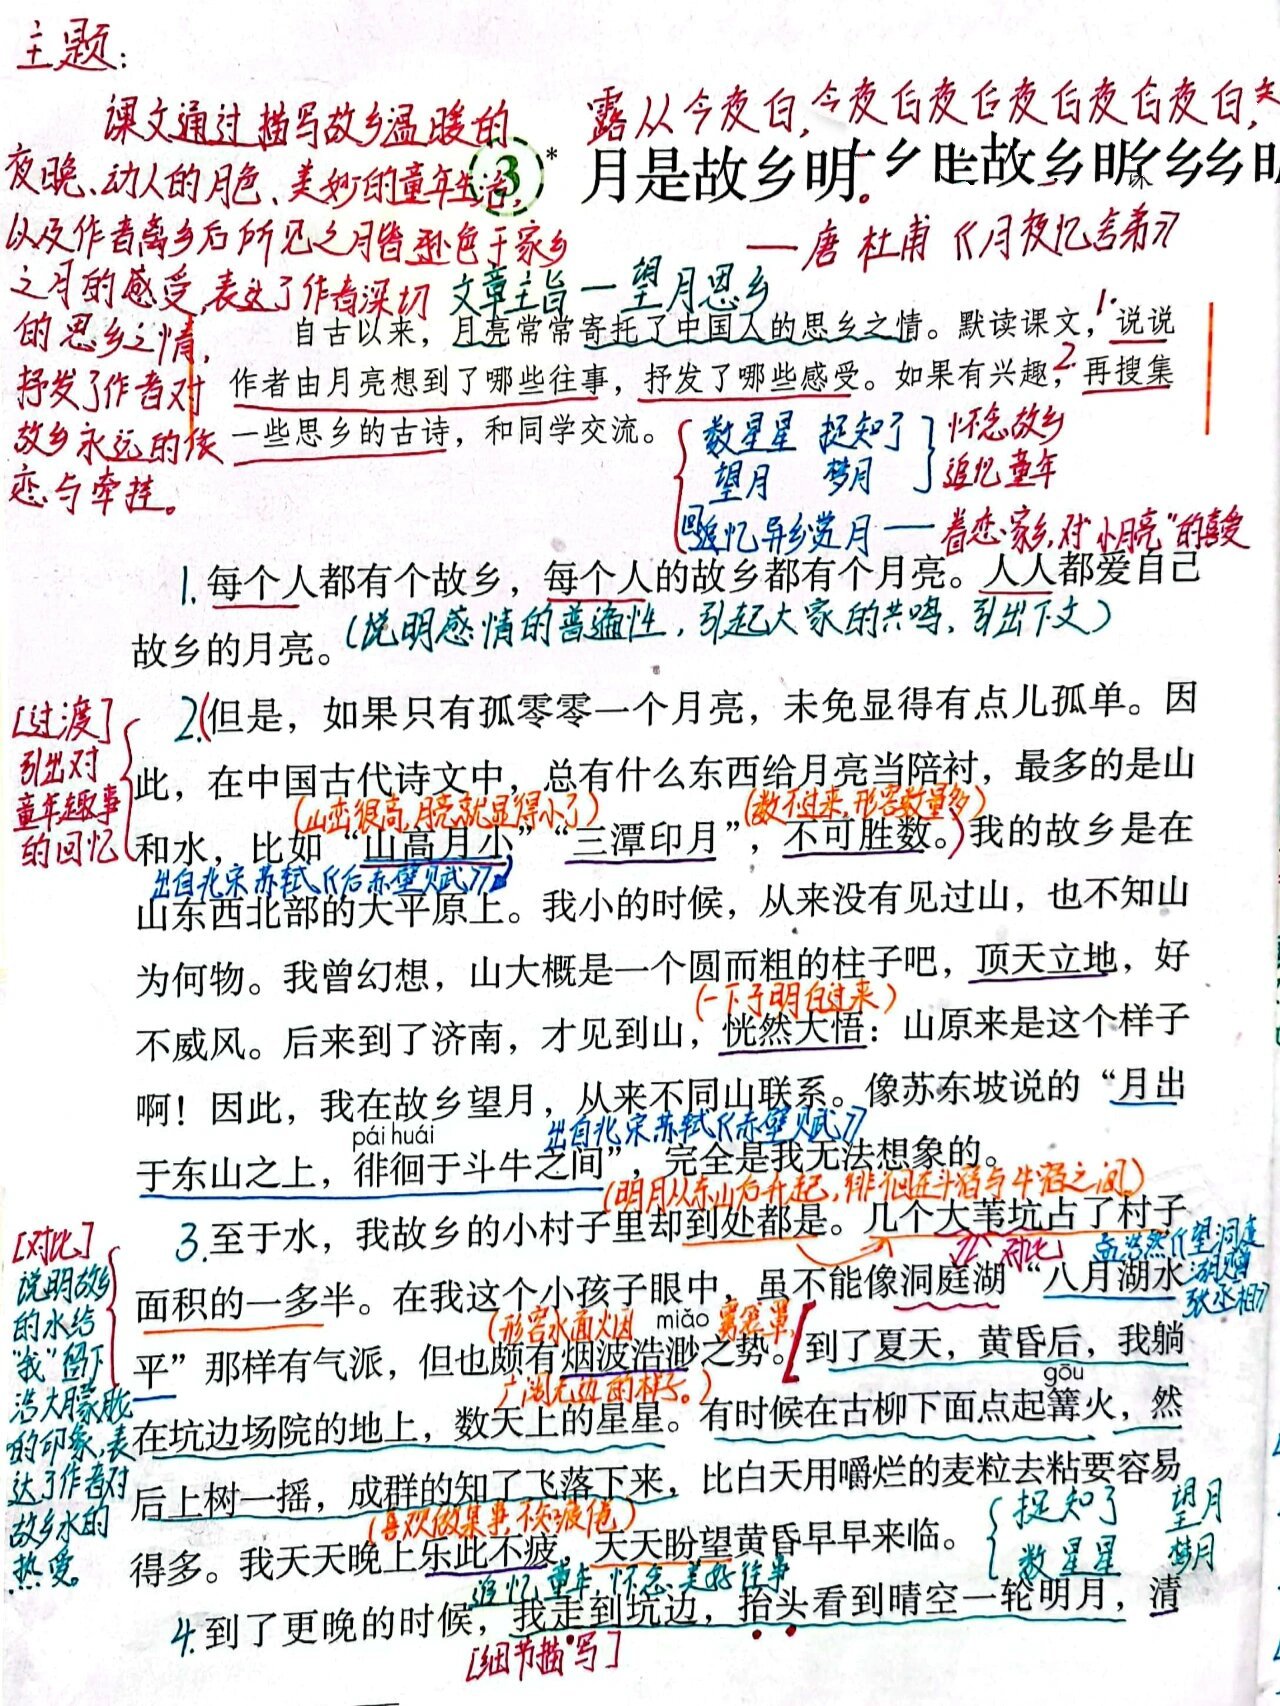 主题：
课文通过描写故乡温暖的
夜晚、动人的月色、美妙的童年生活，
以及作者离乡后所见之月皆逊色于家乡
之月的感受,表达了作者深切
的思乡之情，
抒发了作者对
故乡永远的依
恋与牵挂。
露从今夜白，今夜白夜白夜白夜白夜白，
3* 月是故乡明。
——唐 杜甫《月夜忆舍弟》
文章主旨—望月思乡
自古以来，月亮常常寄托了中国人的思乡之情。默读课文，1.说说
作者由月亮想到了哪些往事，抒发了哪些感受。如果有兴趣，2.再搜集
一些思乡的古诗，和同学交流。
数星星 捉知了
望月 梦月
怀念故乡
追忆童年
回追忆异乡赏月——眷恋家乡,对"小月亮"的喜爱
1.每个人都有个故乡，每个人的故乡都有个月亮。人人都爱自己
故乡的月亮。(说明感情的普遍性，引起大家的共鸣，引出下文)
[过渡]
引出对
童年趣事
的回忆
2.(但是，如果只有孤零零一个月亮，未免显得有点儿孤单。因
此，在中国古代诗文中，总有什么东西给月亮当陪衬，最多的是山
(山峦很高,月亮就显得小了) (数不过来,形容数量多)
和水，比如“山高月小”“三潭印月”，不可胜数。)我的故乡是在
出自北宋苏轼《后赤壁赋》
山东西北部的大平原上。我小的时候，从来没有见过山，也不知山
为何物。我曾幻想，山大概是一个圆而粗的柱子吧，顶天立地，好
(一下子明白过来)
不威风。后来到了济南，才见到山，恍然大悟：山原来是这个样子
啊！因此，我在故乡望月，从来不同山联系。像苏东坡说的“月出
pái huái 出自北宋苏轼《赤壁赋》
于东山之上，徘徊于斗牛之间”，完全是我无法想象的。
(明月从东山后升起,徘徊在斗宿与牛宿之间。)
3.至于水，我故乡的小村子里却到处都是。几个大苇坑占了村子
[对比]
说明故乡
的水给
"我"留下
浩大朦胧
的印象,表
达了作者对
故乡水的
热爱。
对比
孟浩然《望洞庭
湖赠
张丞相》
面积的一多半。在我这个小孩子眼中，虽不能像洞庭湖“八月湖水
(形容水面烟 miǎo 雾笼罩,
平”那样有气派，但也颇有烟波浩渺之势。[到了夏天，黄昏后，我躺
广阔无边的样子。) gōu
在坑边场院的地上，数天上的星星。有时候在古柳下面点起篝火，然
后上树一摇，成群的知了飞落下来，比白天用嚼烂的麦粒去粘要容易
(喜欢做某事,不知疲倦)
捉知了 望月
数星星 梦月
得多。我天天晚上乐此不疲，天天盼望黄昏早早来临。
追忆童年,怀念美好往事
4.到了更晚的时候，我走到坑边，抬头看到晴空一轮明月，清
[细节描写]